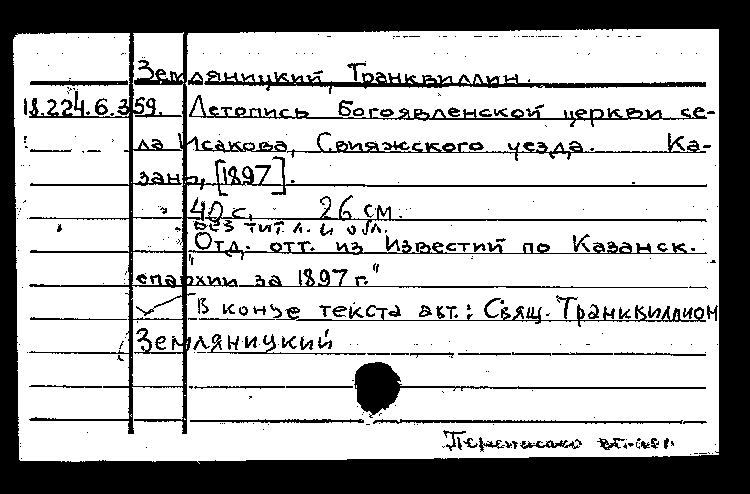 Земляницкий, Транквиллин.
18.224.6.359. Летопись Богоявленской церкви се-
ла Исакова, Свияжского уезда. Ка-
зань, [1897].
40 с. 26 см.
Без тит. л. и обл.
"Отд. отт. из Известий по Казанск.
епархии за 1897 г."
В конце текста авт.: Свящ. Транквиллион
Земляницкий
Переписано